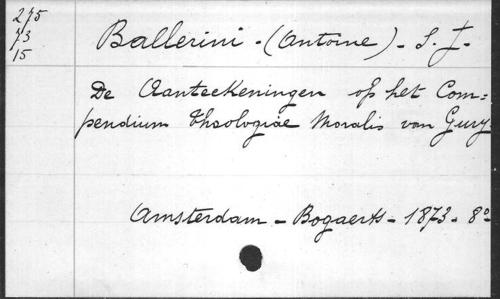 275
73
15
Ballerini - (Antoine) - S. J.
De Aanteekeningen op het Com=
pendium Theologiae Moralis van Gury
Amsterdam - Bogaerts - 1873 - 8º